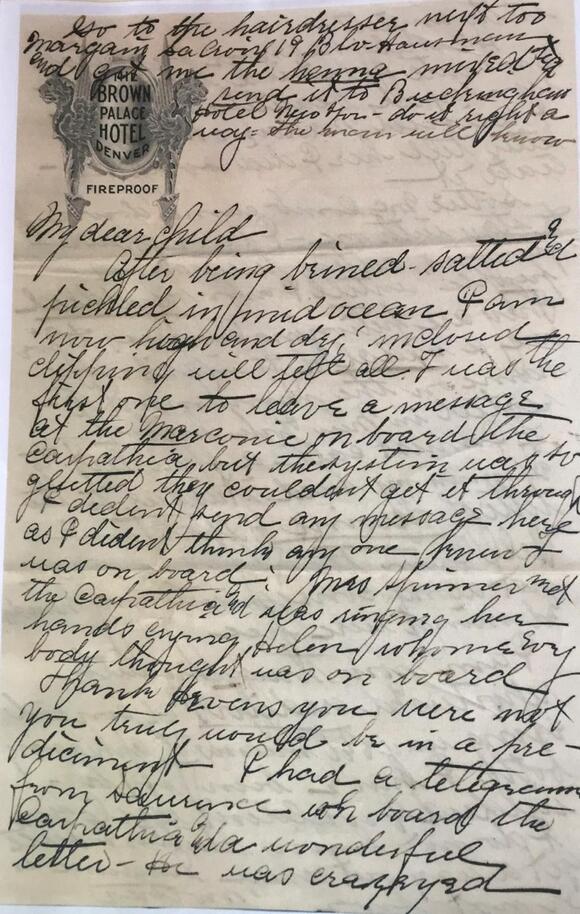 Go to the hairdresser next too
Margain Lacroix 19 Blv Hausman
and get me the henna mixed &
send it to Buckingham
Hotel New Yor- do it right a
way- the man will know
THE
BROWN
PALACE
HOTEL
DENVER
FIREPROOF
My dear Child
After being brined- salted and
pickled in mid ocean I am
now high and dry, inclosed
clipping will tell all. I was the
first one to leave a message
at the Marconie on board the
Carpathia, but the system was so
glutted they couldent get it through
I dident send any message here
as I dident think any one knew I
was on board. Mrs Spinner met
the Carpathia and was ringing her
hands crying Helen whome Evry
body thought was on board
Thank Hevens you were not
you truly would be in a pre-
diciment I had a telegramm
from Laurence on board the
Carpathia and a wonderful
letter- He was crazyed